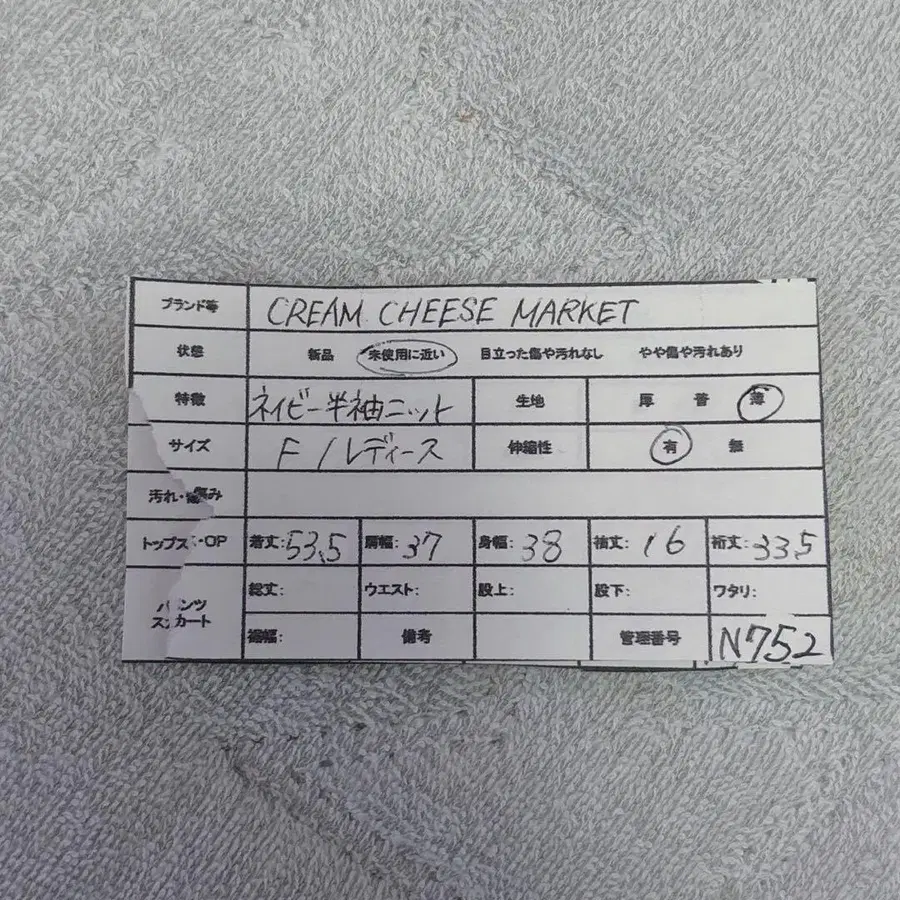 ブランド等 CREAM CHEESE MARKET
状態 新品 未使用に近い 目立った傷や汚れなし やや傷や汚れあり
特徴 ネイビー半袖ニット 生地 厚 普 薄
サイズ F/レディース 伸縮性 有 無
汚れ・傷み
トップス・OP 着丈:53.5 肩幅:37 身幅:38 袖丈:16 裄丈:33.5
パンツ 総丈: ウエスト: 股上: 股下: ワタリ:
スカート 裾幅: 備考 管理番号 N752